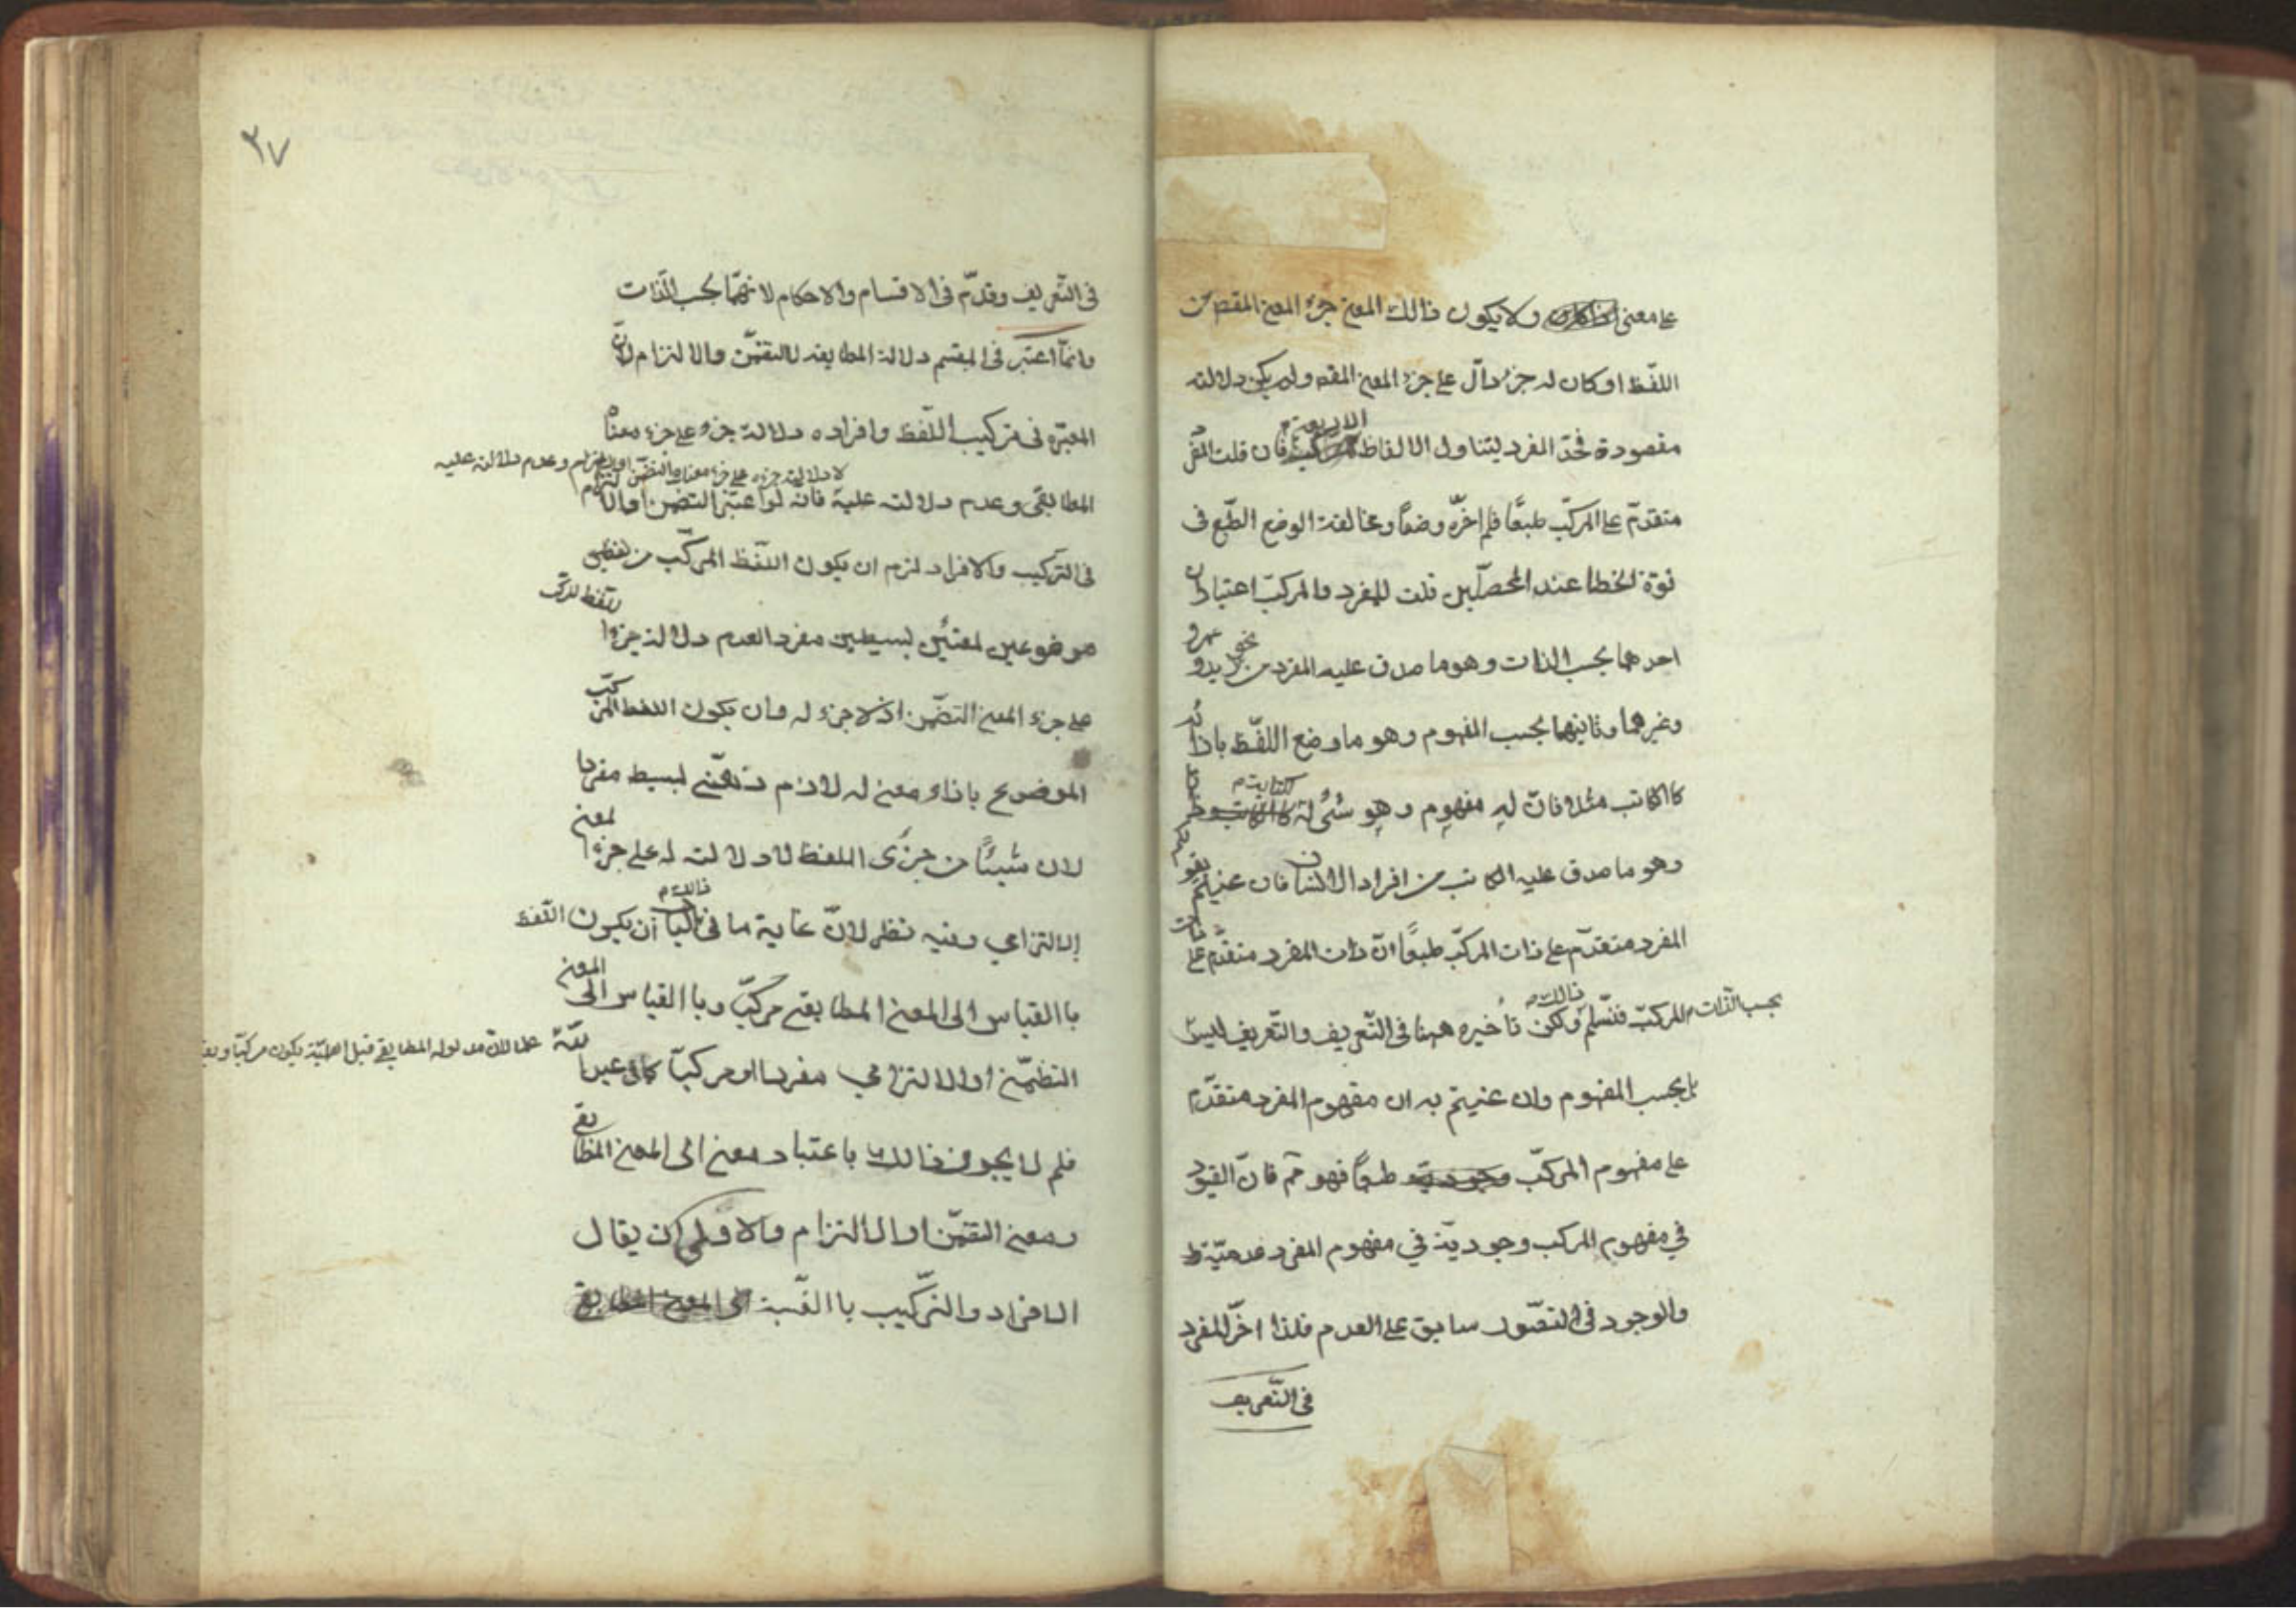 على معنى ولا يكون ذالك المعنى جزء المعنى المقصد من
اللفّظ او كان له جزء دالّ على جزء المعنى المقصد ولم يكن دلالته
مقصودة فحدّ المفرد ليتناول الالفاظ الاربعة فان قلت المفرد
متقدمّ على المركبّ طبعًا فلم اخرّه وضعًا ومخالفة الوضع الطّبع فى
قوّة الخطا عند المحصلّين قلت للمفرد والمركبّ اعتباران
احدهما بحسب الذات وهو ما صدق عليه المفرد من نحو زيد وعمرو
وغيرهما وثانيهما بحسب المفهوم وهو ما وضع اللفّظ باذائه
كا الكاتب مثلا فان له مفهوم وهو شئ له الكتابة
وهو ما صدق عليه الكاتب من افراد الانسان فان عنيتم
المفرد متقدّم على ذات المركبّ طبعًا انّ ذات المفرد متقدّم على
بحسب الذات المركبّ فنسّلم ذالك ولكن تأخيره ههنا فى التّعريف والتّعريف ليس
بل بحسب المفهوم وان عنيتم به ان مفهوم المفرد متقدّم
على مفهوم المركبّ طبعًا فهو مم فانّ القيود
في مفهوم المركب وجوديّة في مفهوم المفرد عدميّة
والوجود فى التصّور سابق على العدم فلذا اخّر المفرد
فى التّعريف
٣٧
فى التّعريف وقدّم فى الاقسام والاحكام لانهّما بحسب الذّات
وانمّا اعتبر فى المقسم دلالة المطابقه لا التضمّن والا لتزام لانّ
المعتبره فى تركيب اللّفظ وافراده دلالة جزؤه على جزء معناه
لا دلالة جزءه على جزء معناه التضمّن او الالتزام وعدم دلالته عليه
المطابقى وعدم دلالته عليه فانه لو اعتبر التضمن او الالتزام
فى التركيب والافراد لزم ان يكون اللّفظ المركّب من لفظين
موضوعين لمعنيين بسيطين مفرد العدم دلالة جزؤا
للّفظ المركّب
على جزء المعنى التضمّن اذ لا جزء له وان يكون اللفظ المركّب
الموضوع باذاء معنى له لازم ذهنّى بسيط مفردا
لان شيئًا من جزئى اللفظ لا دلالت له على جزء المعنى
الالتزامي وفيه نظر لانّ غاية ما فى ذالك أن يكون اللّفظ
باالقياس الى المعنى المطابقى مركبّ وباالقياس الى المعنى
التظمّن اوالالتزامي مفردا او مركبّا
فلم لا يجوز ذالك باعتبار معنى الى المعنى المطابقي
ومعنى التضمّن اوالالتزام والاولى ان يقال
الافراد والتركّيب باالنّسبة